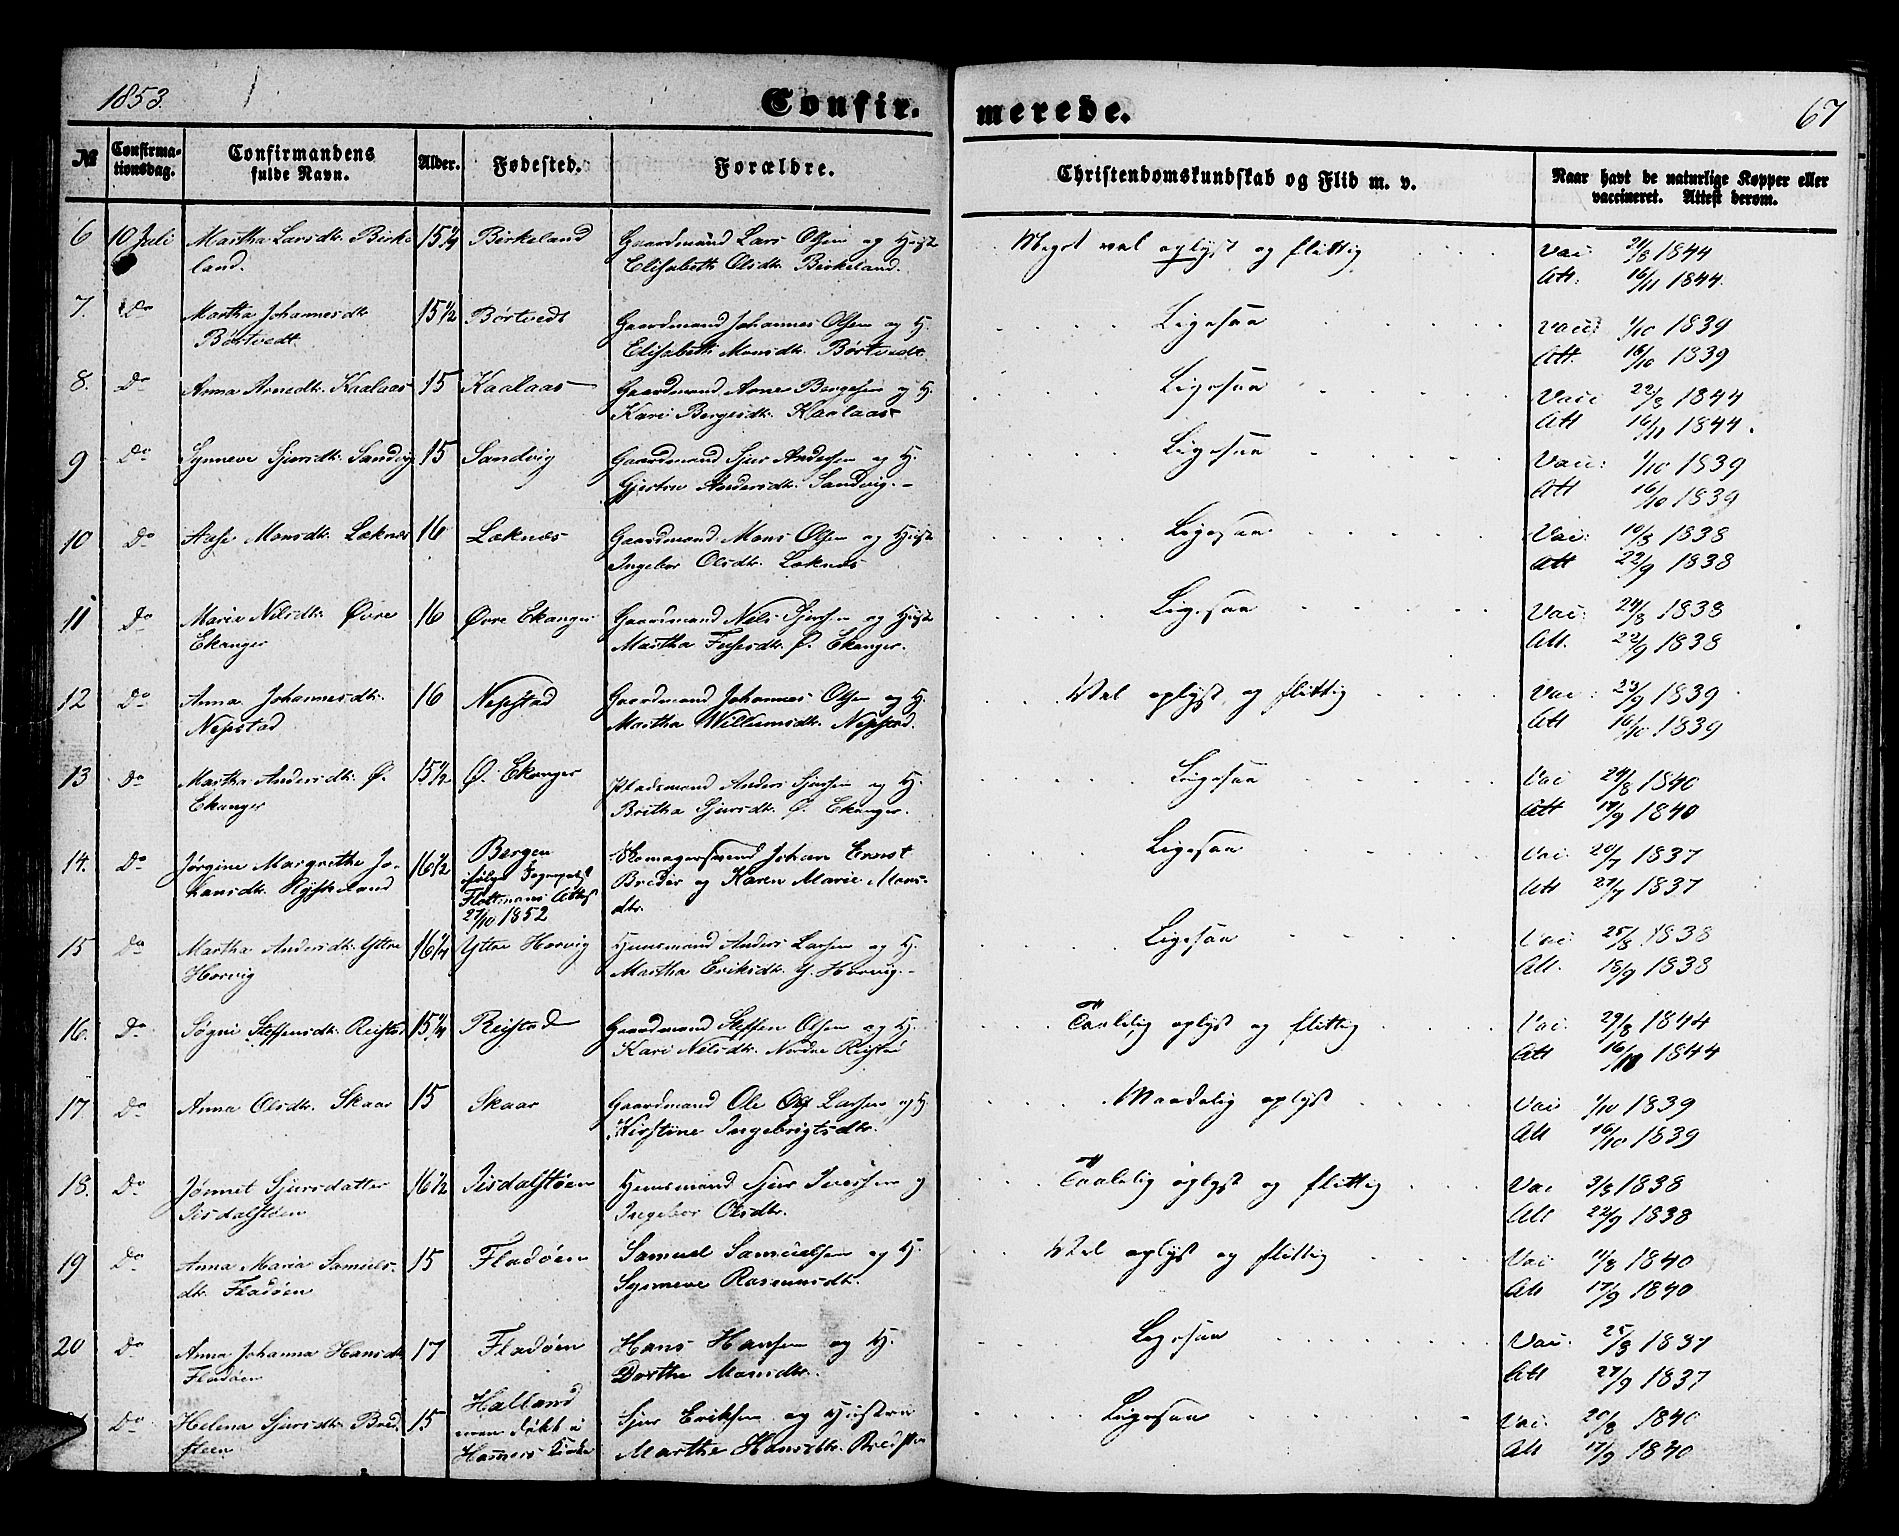 1853.
Confirmerede.
67
№ Confirmationsdag. Confirmandens fulde Navn. Alder. Fødested. Forældre. Christendomskundskab og Flid m. v. Naar havt de naturlige Kopper eller vaccineret. Attest derom.
6 10 Juli Martha Larsdtr. Birke 15 1/4 Birkeland Gaardmand Lars Olsen og Hustr Meget vel oplyst og flittig Vac: 21/8 1844
land. Elisabeth Olsdtr. Birkeland. Att: 16/11 1844.
7. Do Martha Johannesdtr 15 1/2 Børtvedt Gaardmand Johannes Olsen og H. Ligesaa Vacc: 1/10 1839
Børtvedt. Elisabeth Monsdtr. Børtvedt. Att. 16/10 1839
8. Do Anna Arnedtr. Kaalaas 15 Kaalaas Gaardmand Arne Bergesen og H. Ligesaa Vacc 22/8 1844
Kari Bergesdtr. Kaalaas Att 16/11 1844.
9 Do Synneve Sjursdtr. Sandvig 15 Sandvig Gaardmand Sjur Andersen og H. Ligesaa Vacc: 1/10 1839
Gjertru Andersdtr. Sandvig. Att 16/10 1839
10 Do Monsdtr. Loknæs 16 Loknæs Gaardmand Mons Olsen og Hustr Ligesaa Vac: 10/8 1838
Ingebor Olsdtr. Loknæs Att 22/9 1838
11 Do Marie Nilsdtr. Øvre 16 Øvre Ekanger Gaardmand Nils Sjursen og Hustr Ligesaa Vac: 24/8 1838
Ekanger Martha Ø. Ekanger. Att. 22/9 1838
12 Do Anna Johannesdtr. 16 Nepstad Gaardmand Johannes Olsen og H. Vel oplyst og flittig Vac: 23/9 1839
Nepstad Martha Willumsdtr. Nepstad. Att 16/10 1839
13 Do Martha Andersdtr. Ø. 15 1/2 Ø. Ekanger Pladsmand Anders Sjursen og H. Ligesaa Vac 24/8 1840
Ekanger Britha Sjursdtr. Ø. Ekanger. Att 17/9 1840
14. Do Jørgine Margrethe Jo- 16 1/2 Bergen Skomagersvend Johan Ernst Ligesaa Vac: 20/7 1837
hansdtr. Breder og Karen Marie Mons- Att 27/7 1837
27/10 1852 dtr.
15 Do Martha Andersdtr. Yttre 16 1/4 Yttre Horvig Huusmand Anders Larsen og H. Ligesaa Vac: 25/8 1838
Horvig Martha Eriksdtr. Y. Horvig. Att. 18/9 1838
16. Do Søgni Steffensdtr. Reistad 15 1/4 Reistad Gaardmand Steffen Olsen og H. Taalelig oplyst og flittig Vac: 29/8 1844
Kari Nilsdtr. Nordre Reistad Att 16/11 1844
17 Do Anna Olsdtr. Skaar 15 Skaar Gaardmand Ole Larsen og H. Maadelig oplyst Vac 1/10 1839
Kirstine Ingebrigtsdtr. Att 16/10 1839
18. Do Jønnet Sjursdatter 16 1/2 Isdalstøen Huusmand Sjur Iversen og Taalelig oplyst og flittig Vac 3/8 1838
Isdalstøen Ingebor Olsdtr. Att 22/9 1838
19 Do Anna Maria Samuels- 15 Fladøen Samuel Samuelsen og H. Vel oplyst og flittig Vac: 11/8 1840
dtr. Fladøen Synneve Rasmusdtr. Att 17/9 1840
20 Do Anna Johanna Hansdtr 17 Fladøen Hans Hansen og H. Ligesaa Vac: 25/8 1837
Fladøen Dorthe Monsdtr. Att 27/9 1837
Do Helena Sjursdtr. Bred 15 Halland Sjur Eriksen og Hustru Ligesaa Vac: 20/8 1840
steen men døbt i Marthe Hansdtr. Bredsten Att 17/9 1840
Hammers Kirke